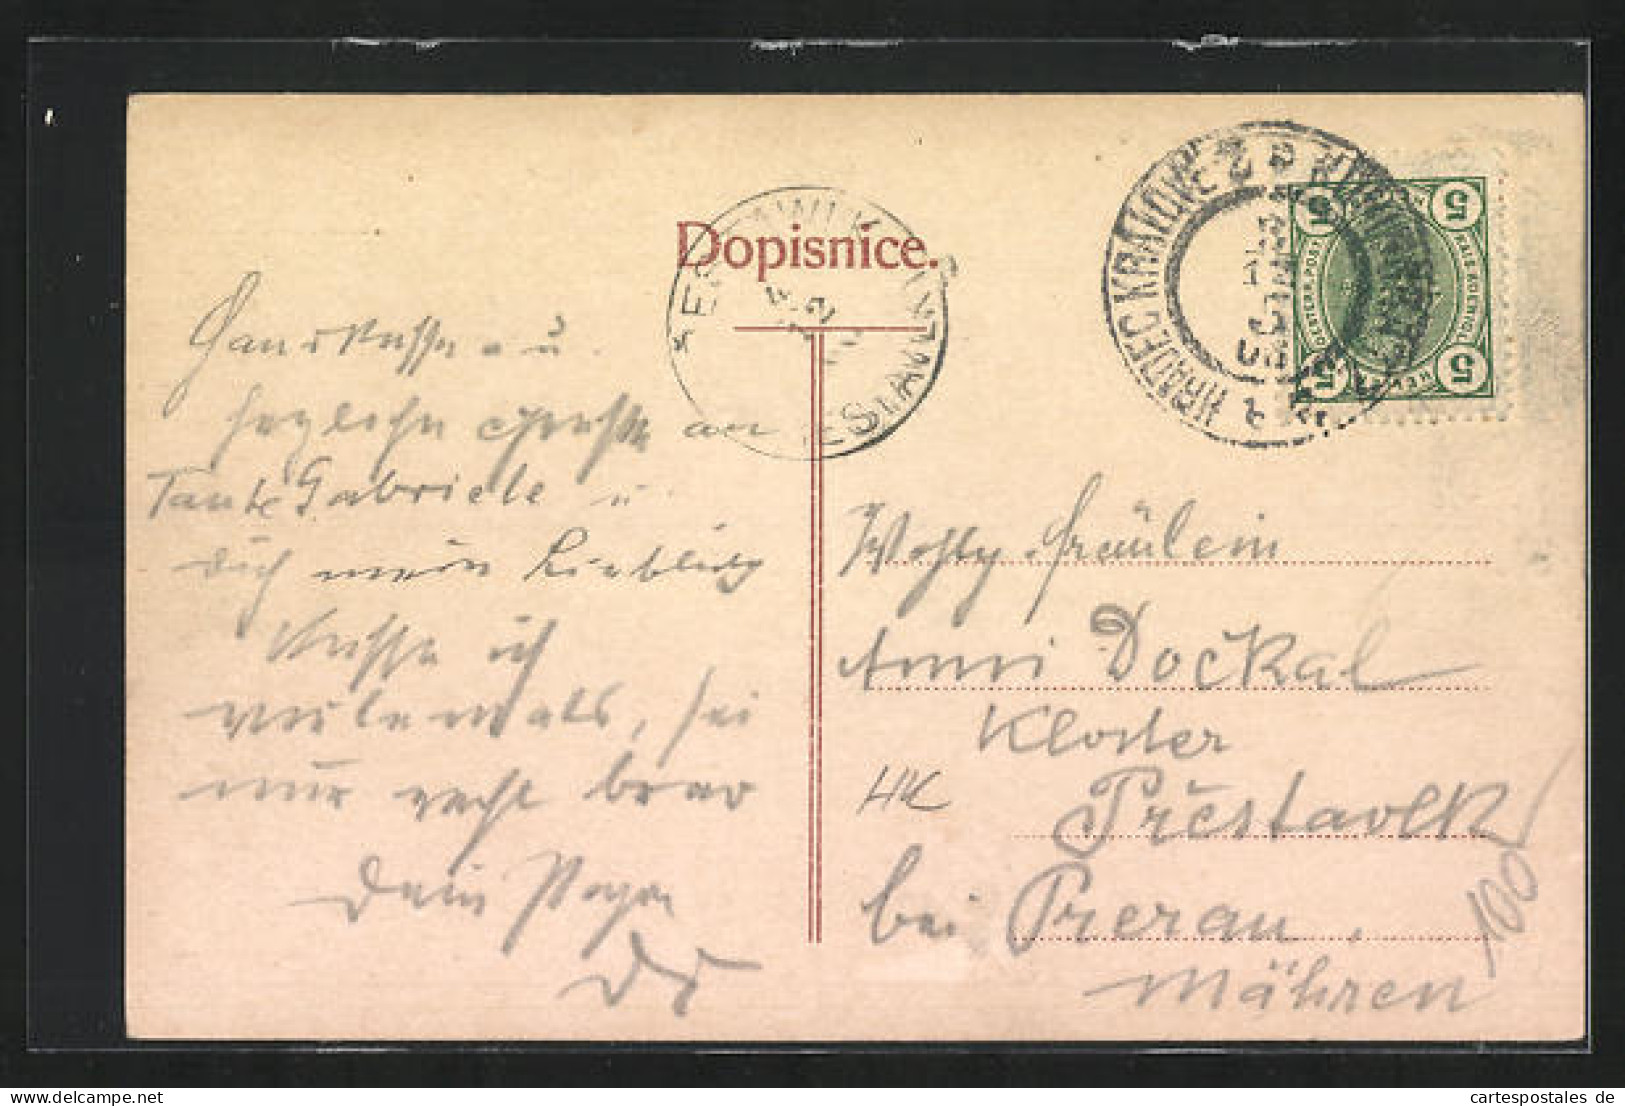 Dopisnice.
HRADEC KRÁLOVÉ 2
5 5
5 5
herzliche Grüße an
Tante Gabriele u.
dich mein Liebling
Küsse ich
vielemals, sei
nur recht brav
Dein Papa
Wohlg. Fräulein
Anni Dočkal
Kloster
HK
Přestavlk
bei Prerau,
Mähren
100
cartespostales de